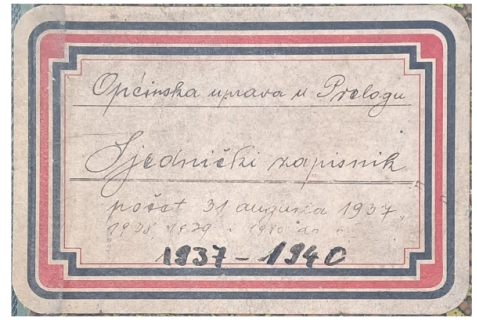 Općinska uprava u Prelogu
Sjednički zapisnik
počet 31 augusta 1937,
1938 1939 i 1940
1937 – 1940